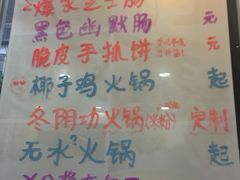 2爆浆芝士肠
黑色幽默肠 元
脆皮手抓饼 元
椰子鸡火锅 起
冬阴功火锅(火粉) 定制
无水火锅 起